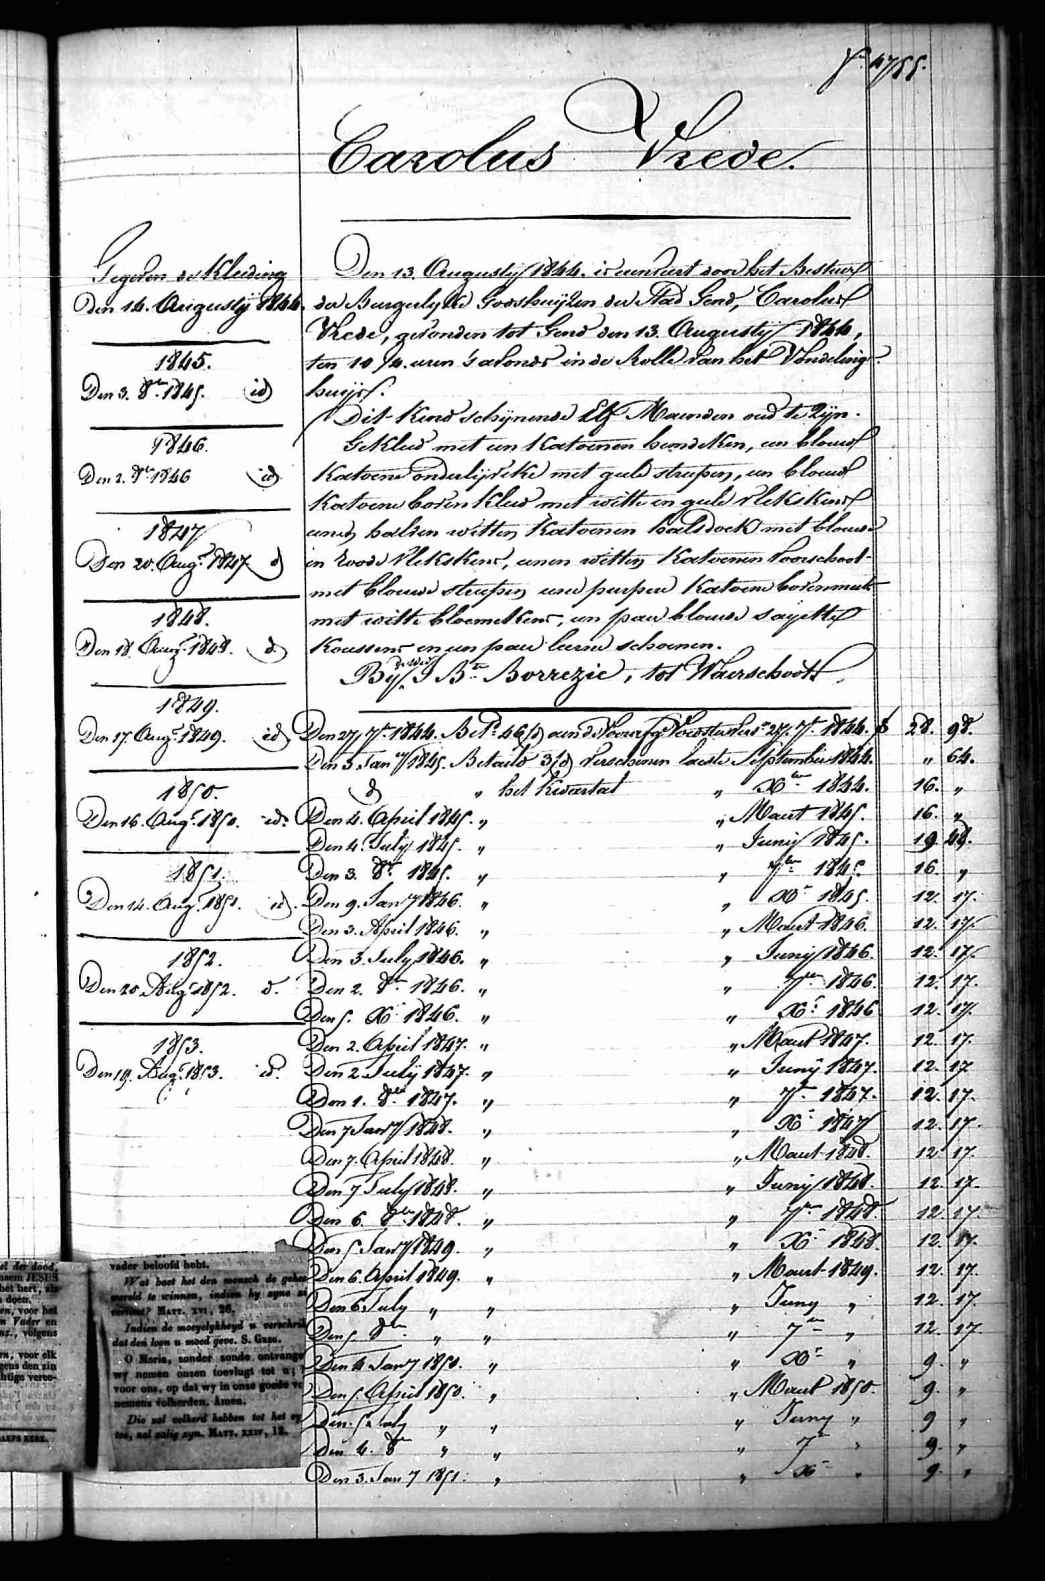 Carolus Vrede.
Gegeven de Kleeding
Den 14. Augusty 1844.
1845.
Den 3. 8er 1845. id
1846.
Den 2. 8er 1846 id
1847
Den 20. Augt 1847 d
1848.
Den 18. Augt 1848. d.
1849.
Den 17. Augt 1849. id
1850.
Den 16. Augt 1850. id.
1851.
Den 14. Augt 1851. id.
1852.
Den 20. Augt 1852. d.
1853.
Den 19. Augt 1853. id.
Den 13. Augusty 1844. is aenveert door het Bestuer
der Burgerlyke Godshuijzen der Stad Gend, Carolus
Vrede, gevonden tot Gend den 13. Augusty 1844,
ten 10 1/4 uren 's avonds in de Rolle van het Vondeling-
huijs.
Dit Kind schijnende Elf Maenden oud te Zijn.
Gekleed met een Katoenen hemdeken, een blauw
Katoene onderlijveke met geele streepen, een blauw
Katoene boven Kleed met witte en geele vlekskens
eenen halven witten Katoenen halsdoek met blauwe
en roode vlekskens, eenen witten Katoenen Voorschoot
met blauwe streepen eene purpere Katoene bovenmuts
met witte bloemekens, een paer blauwe sayette
Koussens en een paer leere schoenen.
Bij de Wed. J Bte Borrezie, tot Waerschoot.
Den 27 7er 1844. Bet. 46 aen de 27. 7er 1844. f 28. 98.
Den 3. Jany 1845. Betaeld 3 verschenen laeste September 1844. " 64.
d " het Kwartael " Xber 1844. 16. "
Den 4. April 1845. " " Maert 1845. 16. "
Den 4. July 1845. " " Junij 1845. 19. 48.
Den 3. 8er 1845. " " 7ber 1845. 16. "
Den 9. Jany 1846. " " Xr 1845. 12. 17.
Den 3. April 1846. " " Maert 1846. 12. 17.
Den 3 July 1846. " " Junij 1846. 12. 17.
Den 2. 8er 1846. " " 7er 1846. 12. 17.
Den 5. Xr 1846. " " Xr 1846 12. 17.
Den 2. April 1847. " " Maert 1847. 12. 17.
Den 2 July 1847. " " Junij 1847. 12. 17
Den 1. 8er 1847. " " 7r 1847. 12. 17.
Den 7 Jany 1848. " " Xr 1847 12. 17.
Den 7. April 1848. " " Maert 1848. 12. 17.
Den 7 July 1848. " " Junij 1848. 12. 17.
Den 6. 8er 1848. " " 7er 1848. 12. 17.
Den 5 Jany 1849. " " Xr 1848. 12. 17.
Den 6. April 1849. " " Maert 1849. 12. 17.
Den 6 July " " " Juny " 12. 17.
Den 5. 8er " " " 7er " 12. 17.
Den 4 Jany 1850. " " Xr " 9. "
Den 5. April 1850. " " Maert 1850. 9. "
Den 5 July " " " Juny " 9 "
Den 4. 8er " " " 7r " 9. "
Den 3. Jany 1851. " " Xr " 9. "
vader beloofd hebt.
Wat baet het den mensch de gehee
wereld te winnen, indien hy zyne zi
MATT. XVI, 26.
Indien de moeyelykheyd u verschrik
dat den loon u moed geve. S. GREG.
O Maria, zonder zonde ontvange
wy nemen onzen toevlugt tot u;
voor ons, op dat wy in onze goede v
nemens volherden. Amen.
Die zal volherd hebben tot het ey
toe, zal zalig zyn. MATT. XXIV, 13.